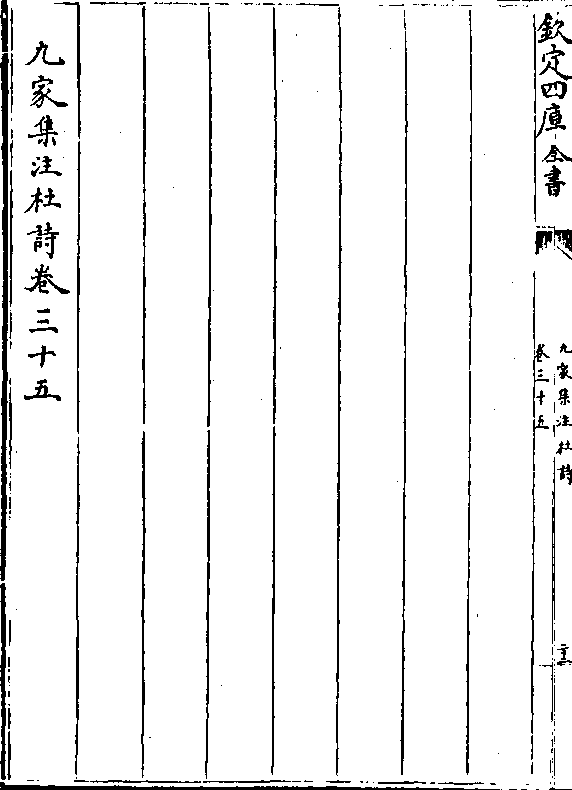 欽定四庫全書
九家集注杜詩
卷三十五
九家集注杜詩卷三十五